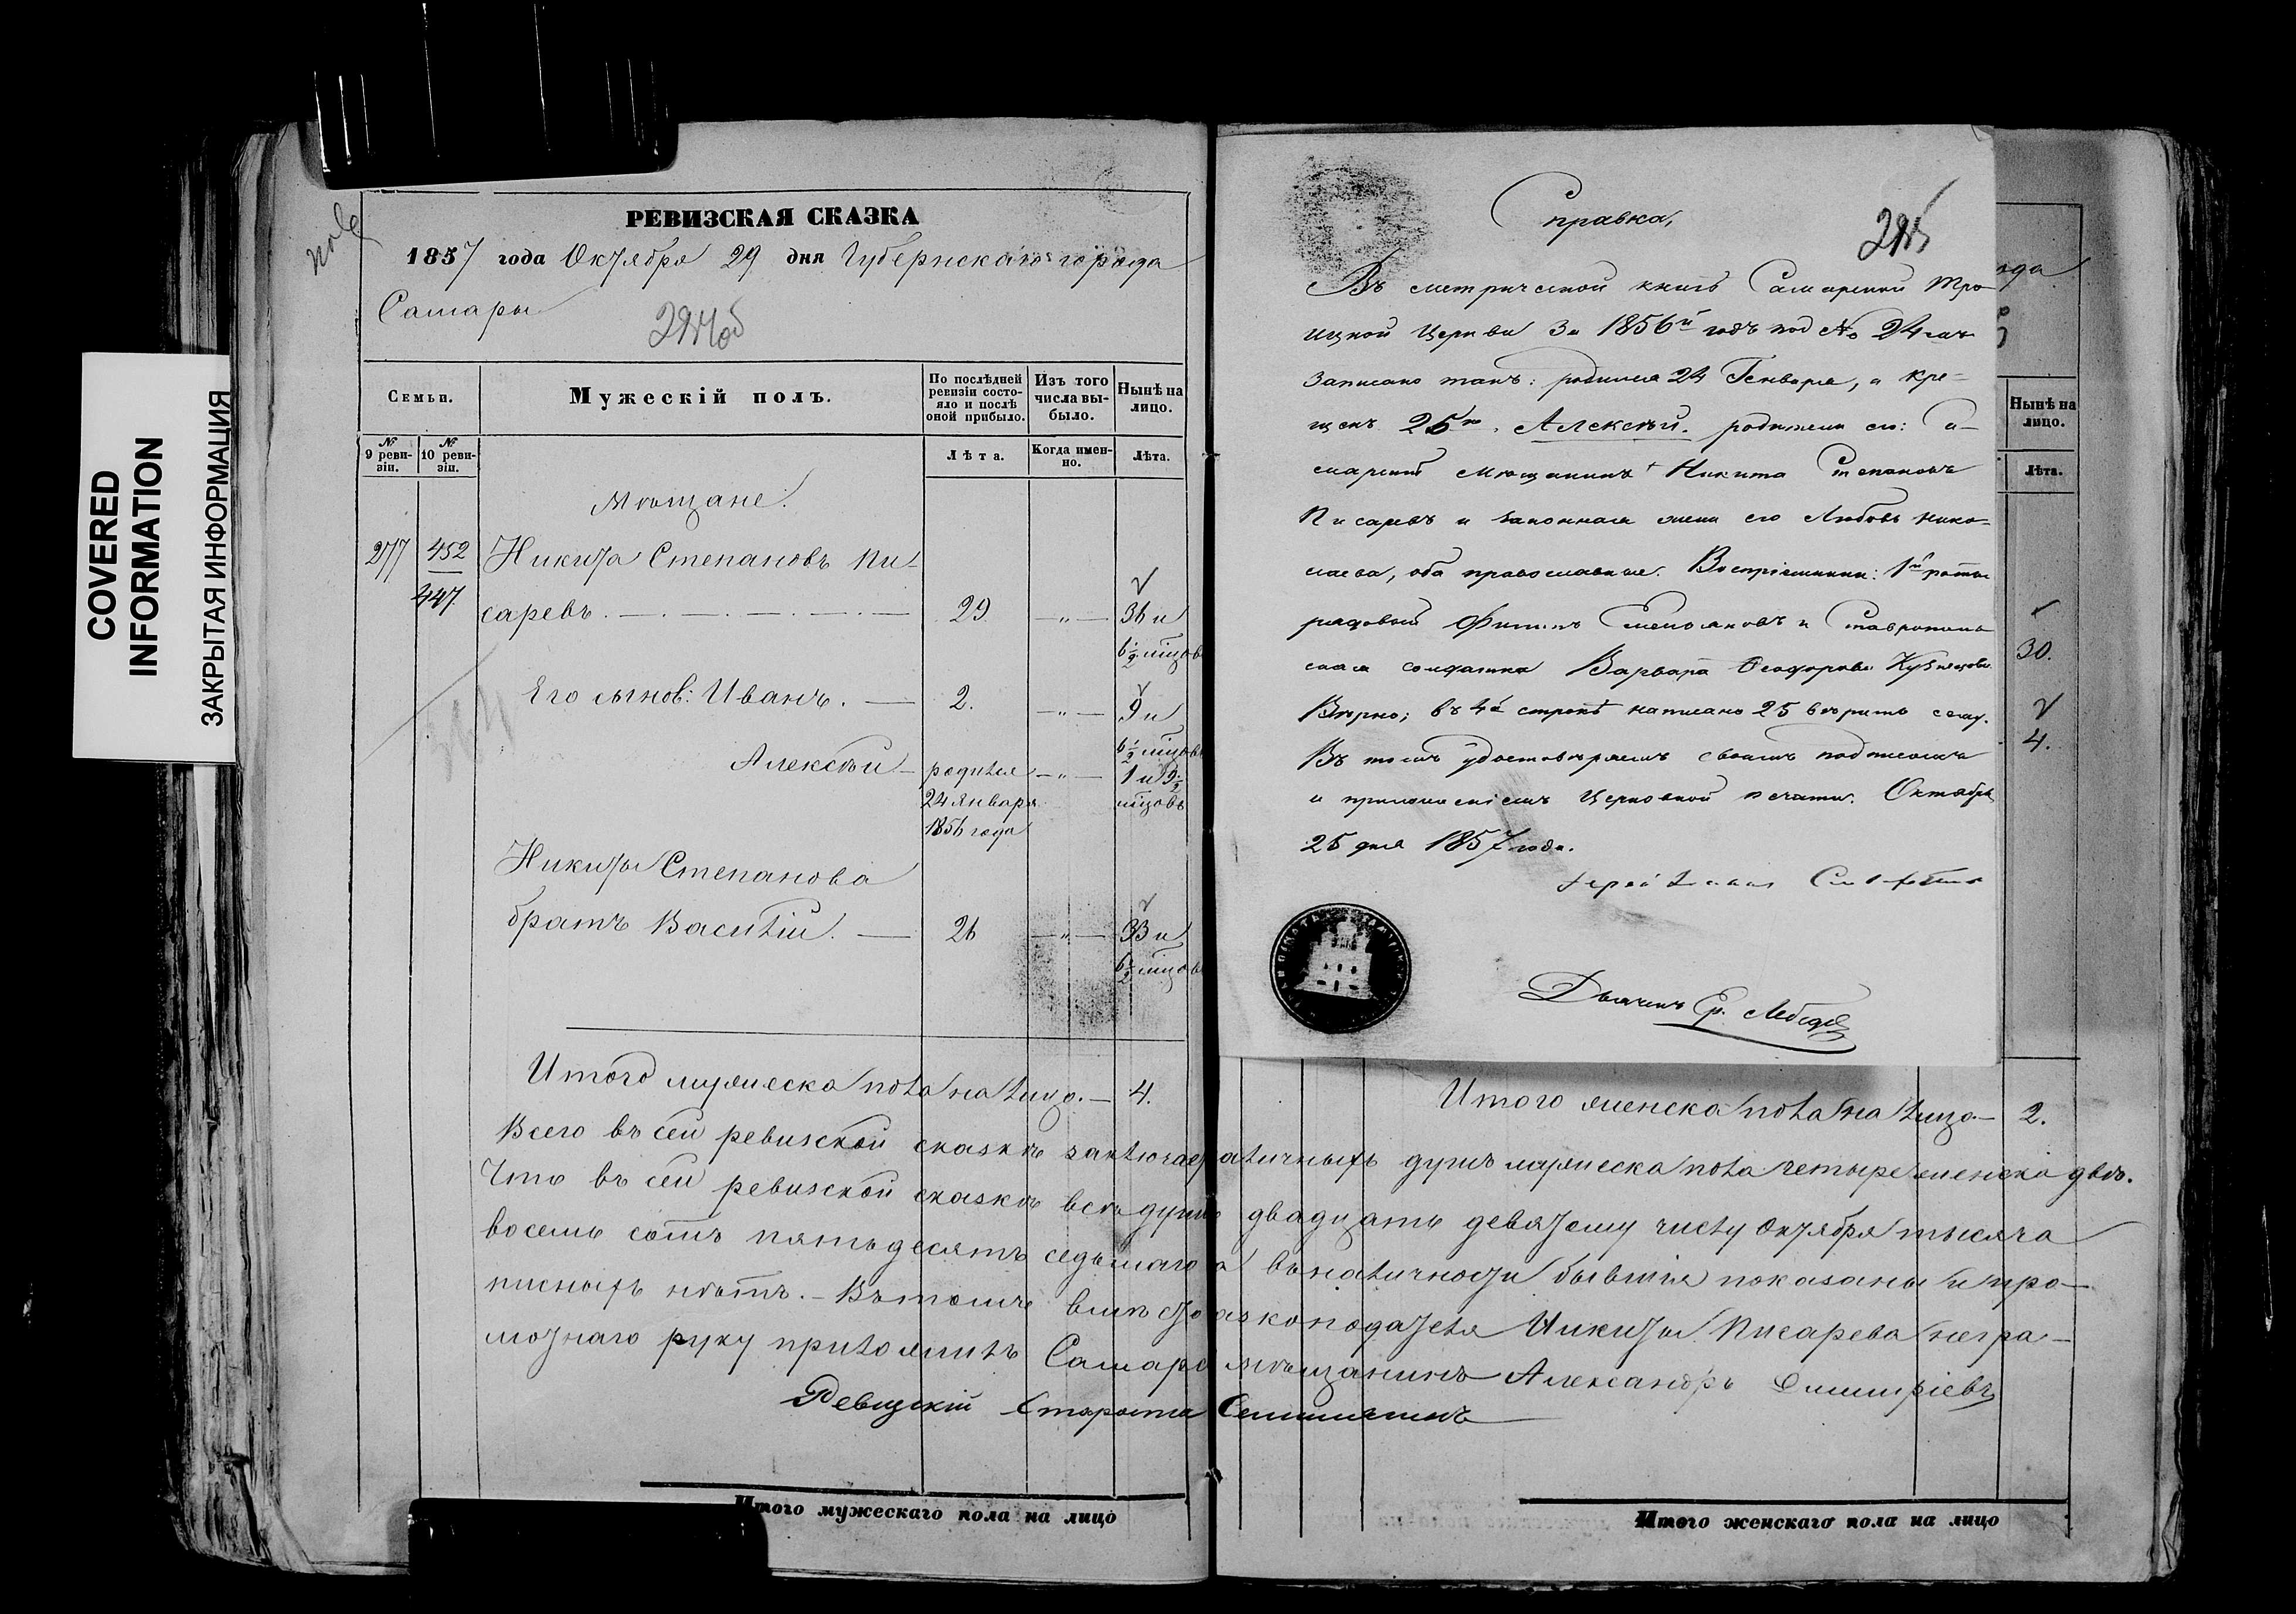 COVERED
INFORMATION
ЗАКРЫТАЯ ИНФОРМАЦИЯ
РЕВИЗСКАЯ СКАЗКА
1857 года Октября 29 дня Губернскаго города
Самары
Семьи.
Мужескій полъ.
По послѣдней ревизіи состояло и послѣ оной прибыло.
Изъ того числа выбыло.
Нынѣ на лицо.
№ 9 ревизіи.
№ 10 ревизіи.
Лѣта.
Когда именно.
Лѣта.
Мѣщане:
277 452 Никита Степановъ Пи-
447. саревъ. 29 —„— 36 и
6½ мѣцовъ
Его сынов: Иванъ. — 2. —„— 9 и
6½ мѣцовъ
Алексѣй — родился —„— 1 и 9½
24 Января мѣцовъ
1856 года
Никиты Степанова
братъ Василій. — 26 —„— 33 и
6½ мѣцовъ
Итого мужеска пола на лицо. — 4.
Справка,
295
Въ метрической книгѣ Самарской Тро-
ицкой Церкви За 1856й годъ под № 24
Записано такъ: родился 24 Генваря, а кре-
щенъ 25го, Алексѣй. родители его: Са-
марский Мѣщанинъ Никита Степановъ
Писаревъ и законная жена его Любовь Нико-
лаева, оба православные. Воспріемники: 1й роты
рядовый Филипъ Емельяновъ и Ставрополь
ская солдатка Варвара Феодорова Кузнецова.
Вѣрно; въ 4й строкѣ написано 25 вѣрить слѣд.
Въ томъ удостовѣряемъ своимъ подписомъ
и приложеніемъ Церковной печати. Октября
25 дня 1857 года.
Дьячекъ Ер. Лебедев
ода
Нынѣ на лицо.
Лѣта.
30.
4.
Итого женска пола на лицо — 2.
Всего въ сей ревизской сказкѣ заключае наличныхъ душъ мужеска пола четыре женска двѣ.
Что въ сей ревизской сказкѣ всѣ души двадцать девятому числу Октября тысяча
восемь сотъ пятьдесятъ седьмаго въ наличности бывшія показаны и про-
писныхъ нѣтъ. — Въ томъ вмѣсто сказкоподателя Никиты Писарева негра-
мотнаго руку приложилъ Самарс мѣщанинъ Александръ Димитріевъ
Ревизскій Староста
Итого мужескаго пола на лицо
Итого женскаго пола на лицо